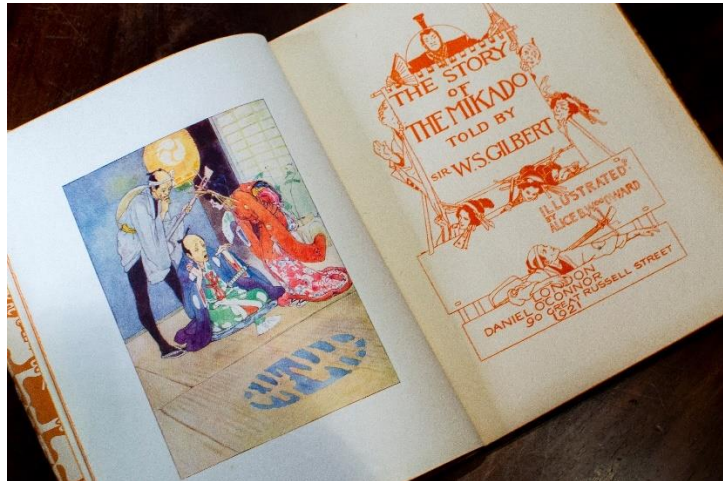 THE STORY
OF
THE MIKADO
TOLD BY
SIR W.S. GILBERT
ILLUSTRATED
BY
ALICE B. WOODWARD
LONDON
DANIEL O'CONNOR
90 GREAT RUSSELL STREET
1921